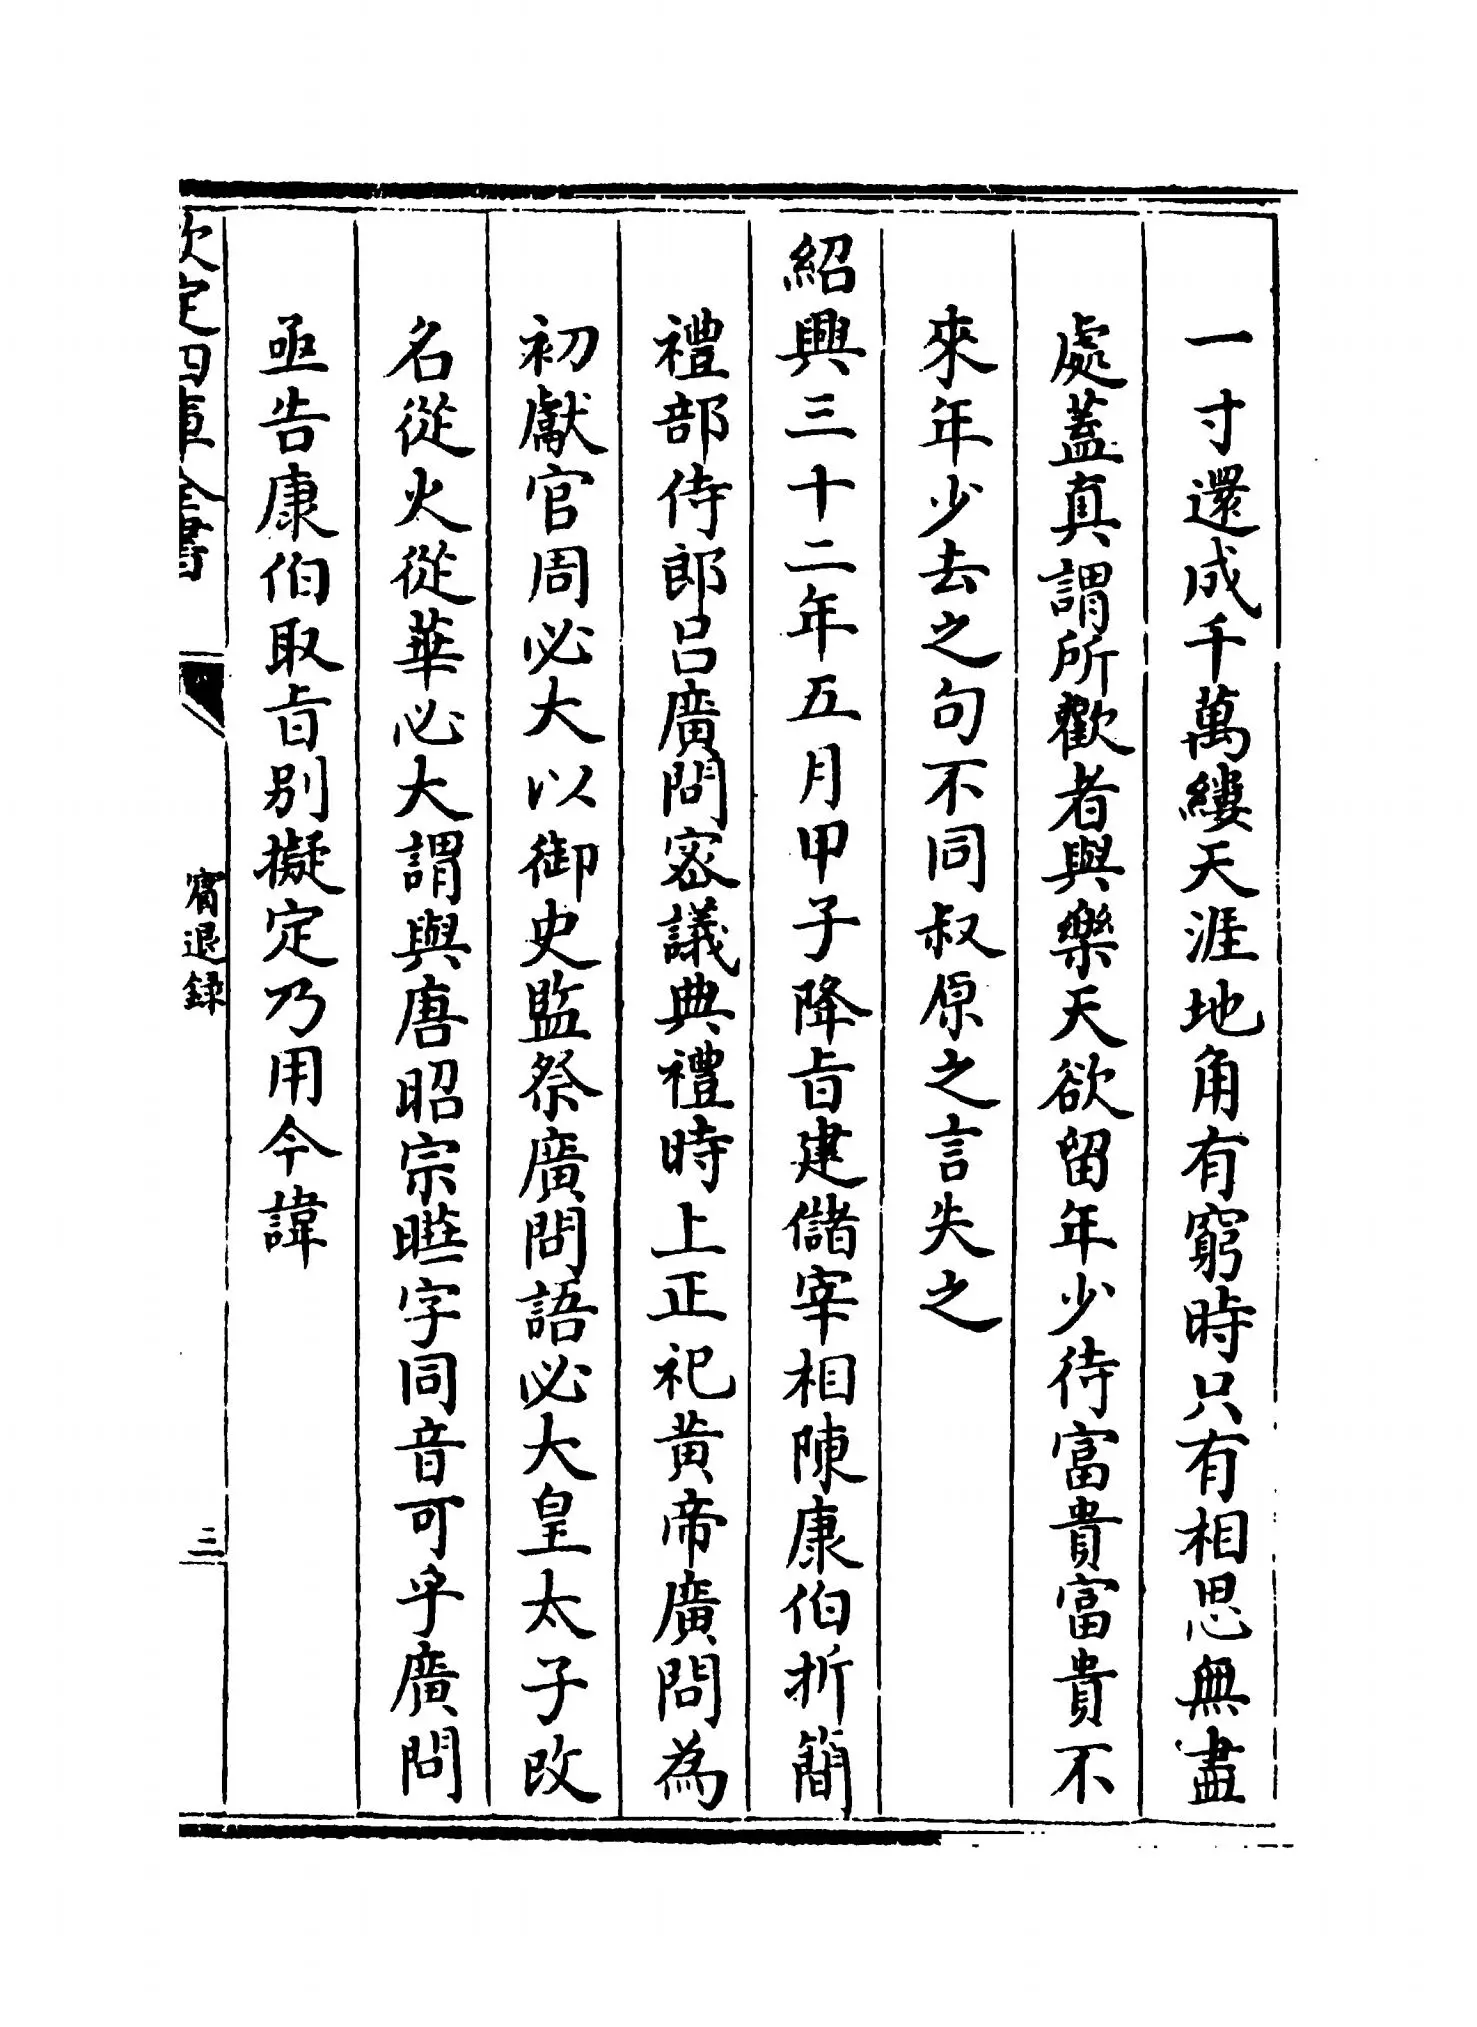 一寸還成千萬縷天涯地角有窮時只有相思無盡
處蓋真謂所歡者與樂天欲留年少待富貴富貴不
來年少去之句不同叔原之言失之
紹興三十二年五月甲子降旨建儲宰相陳康伯折簡
禮部侍郎呂廣問宻議典禮時上正祀黄帝廣問為
初獻官周必大以御史監祭廣問語必大皇太子改
名從火從華必大謂與唐昭宗曄字同音可乎廣問
亟告康伯取旨别擬定乃用今諱
欽定四庫全書
賓退録
三